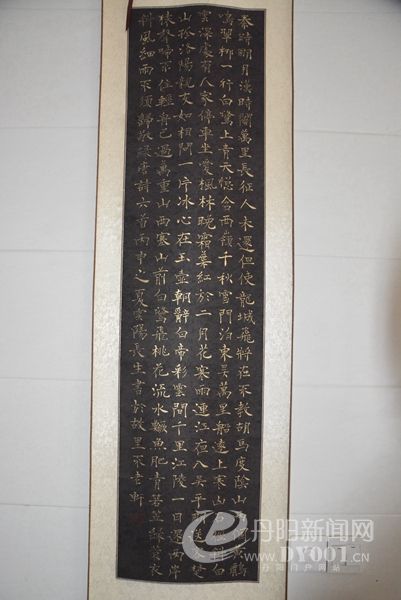 秦時明月漢時關萬里長征人未還但使龍城飛將在不教胡馬度陰山兩個黃鸝
鳴翠柳一行白鷺上青天窗含西嶺千秋雪門泊東吳萬里船遠上寒山石徑斜白
雲深處有人家停車坐愛楓林晚霜葉紅於二月花寒雨連江夜入吳平明送客楚
山孤洛陽親友如相問一片冰心在玉壺朝辭白帝彩雲間千里江陵一日還兩岸
猿聲啼不住輕舟已過萬重山西塞山前白鷺飛桃花流水鱖魚肥青箬笠綠蓑衣
斜風細雨不須歸敬錄唐詩六首丙申之夏雲陽長生書於故里不老軒
丹阳新闻网
WWW.DY001.CN
丹阳门户网站